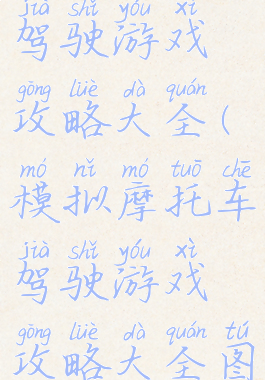 jià shǐ yóu xì
驾驶游戏
gōng lüè dà quán
攻略大全(
mó nǐ mó tuō chē
模拟摩托车
jià shǐ yóu xì
驾驶游戏
gōng lüè dà quán tú
攻略大全图